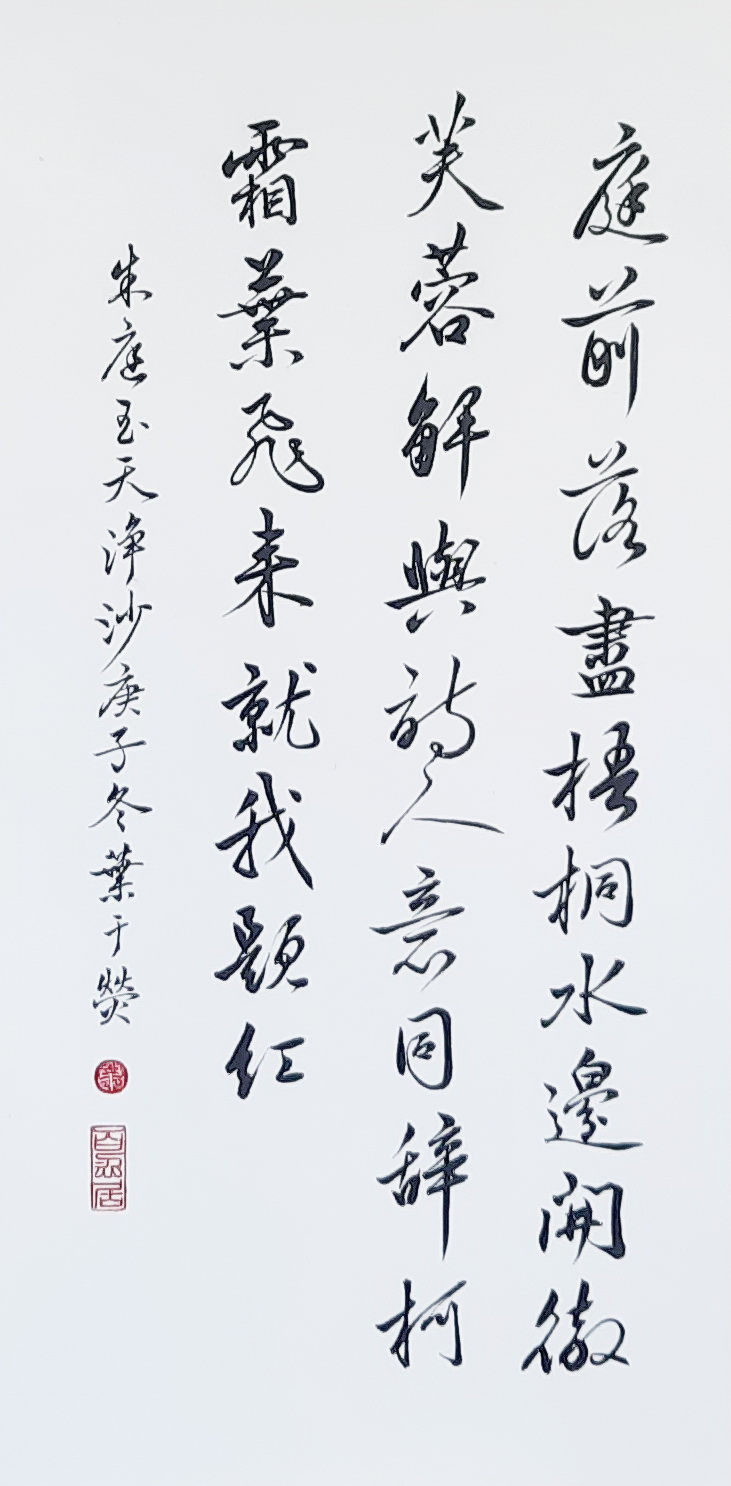 庭前落盡梧桐水邊開徹
芙蓉解與詩人意同辞柯
霜葉飛来就我題紅
朱庭玉天淨沙庚子冬葉于熒